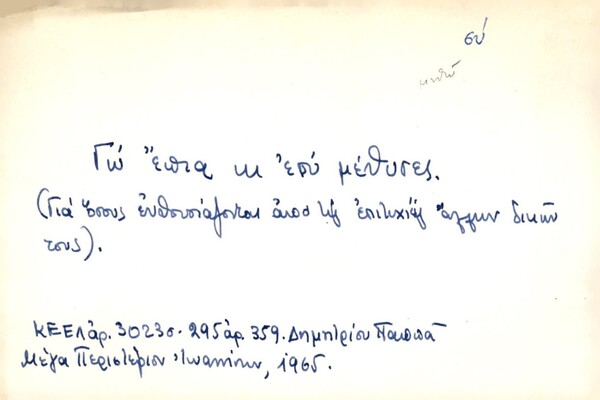 σύ
μεθῶ
Γιώ ἔπια κι ἐσύ μέθυσες.
(Γιά ὅσους ἐνθουσιάζονται ἀπό τίς ἐπιτυχίες ἄλλων δικῶν
τους).
ΚΕΕΛ ἀρ. 3023 σ. 295 ἀρ. 359. Δημητρίου Παππᾶ
Μέγα Περιστέριον Ἰωαννίνων, 1965.